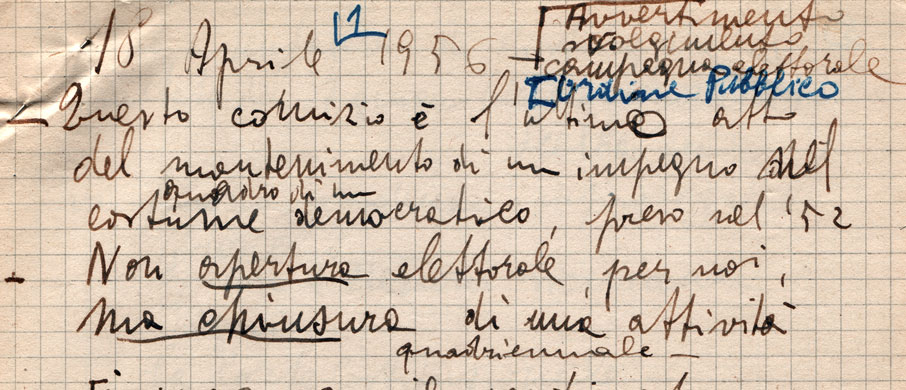 18 Aprile 1956
Avvertimento
svolgimento
campagna elettorale
Ordine Pubblico
Questo comizio è l'ultimo atto
del mantenimento di un impegno nel
quadro di un
costume democratico, preso nel '52
Non apertura elettorale per noi,
ma chiusura di una attività
quadriennale -